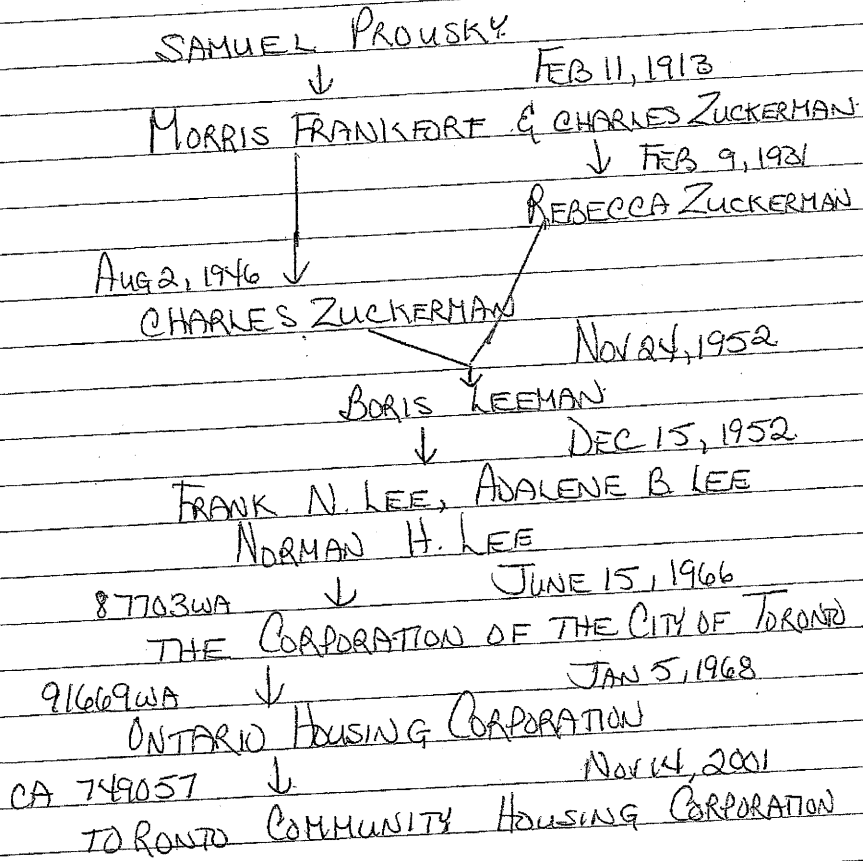 SAMUEL PROUSKY
↓ FEB 11, 1913
MORRIS FRANKFORT & CHARLES ZUCKERMAN
↓ FEB 9, 1931
REBECCA ZUCKERMAN
AUG 2, 1946 ↓
CHARLES ZUCKERMAN
NOV 24, 1952
BORIS LEEMAN
↓ DEC 15, 1952
FRANK N. LEE, ADALENE B. LEE
NORMAN H. LEE
87703WA ↓ JUNE 15, 1966
THE CORPORATION OF THE CITY OF TORONTO
91669WA ↓ JAN 5, 1968
ONTARIO HOUSING CORPORATION
CA 749057 ↓ NOV 14, 2001
TORONTO COMMUNITY HOUSING CORPORATION